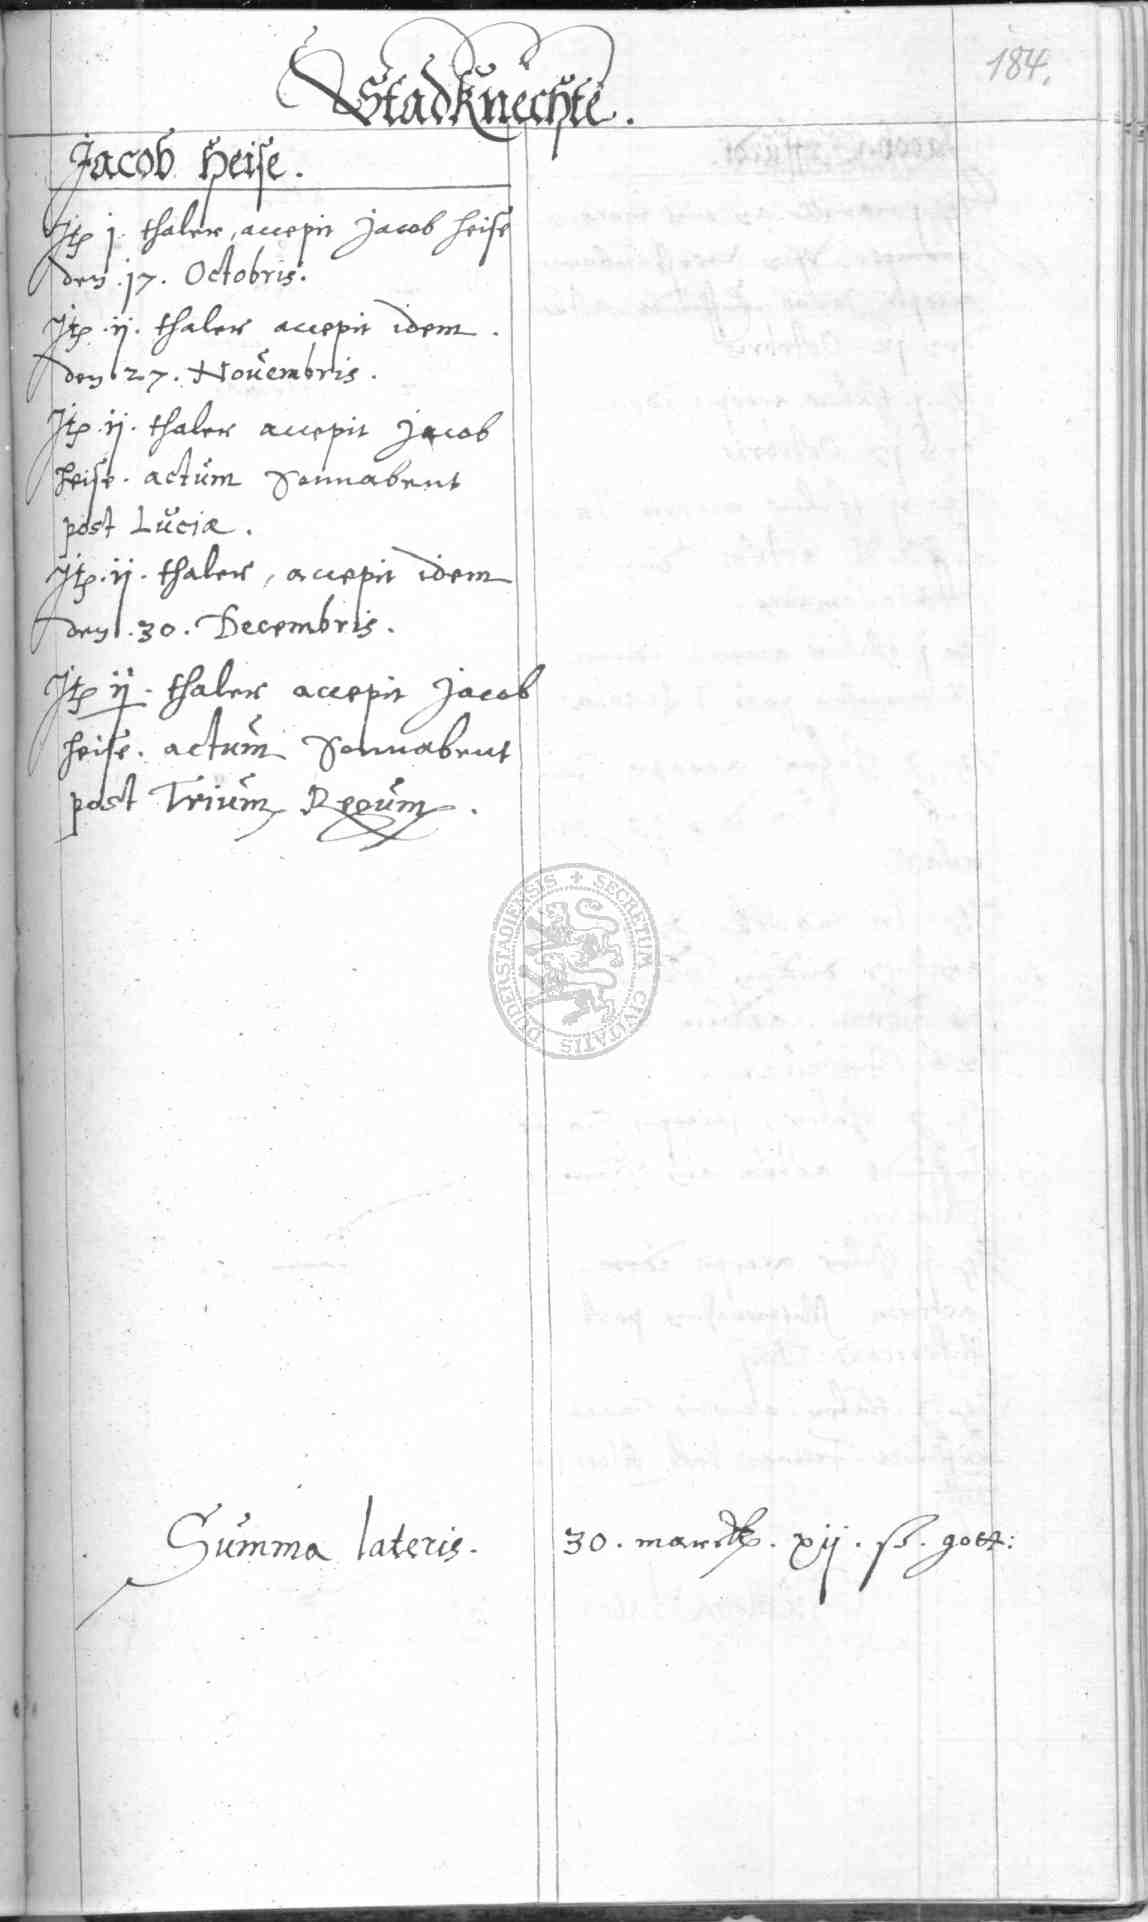 184.
Stadknechte.
Jacob Heise.
Jtp j. thaler, accepit Jacob Heise
den .17. Octobris.
Jtp .ij. thaler accepit idem.
den 27. Novembris.
Jtp .ij. thaler accepit Jacob
Heise. actum Sonnabent
post Luciæ.
Jtp .ij. thaler, accepit idem
den .30. Decembris.
Jtp ij. thaler accepit Jacob
Heise. actum Sonnabent
post Trium Regum.
SECRETUM CIVITATIS DUDERSTADIENSIS
Summa lateris. 30. marck. xij. ß. gott: